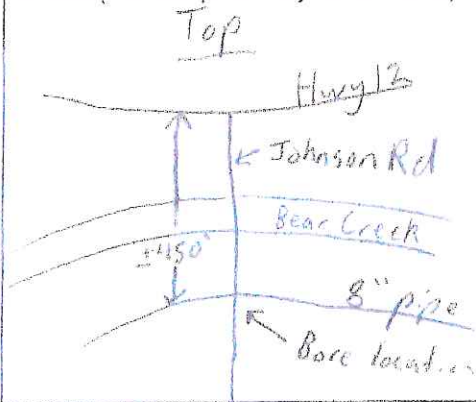 Top
Hwy 12
Johnson Rd
Bear Creek
±450'
8" pipe
Bore